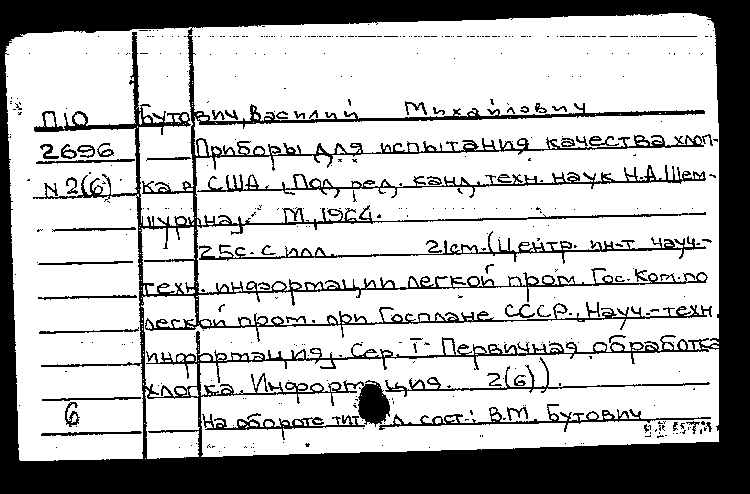 П10 Бутович, Василий Михайлович
2696 Приборы для испытания качества хлоп-
N 2(6) ка в США. [Под ред. канд. техн. наук Н.А. Шем-
шурина]. М., 1964.
25с. с илл. 21см. (Центр. ин-т науч.-
техн. информации легкой пром. Гос. Ком. по
легкой пром. при Госплане СССР. [Науч.-техн.
информация]. Сер. I- Первичная обработка
хлопка. Информация. 2(6)).
6 На обороте тит. л. сост.: В.М. Бутович